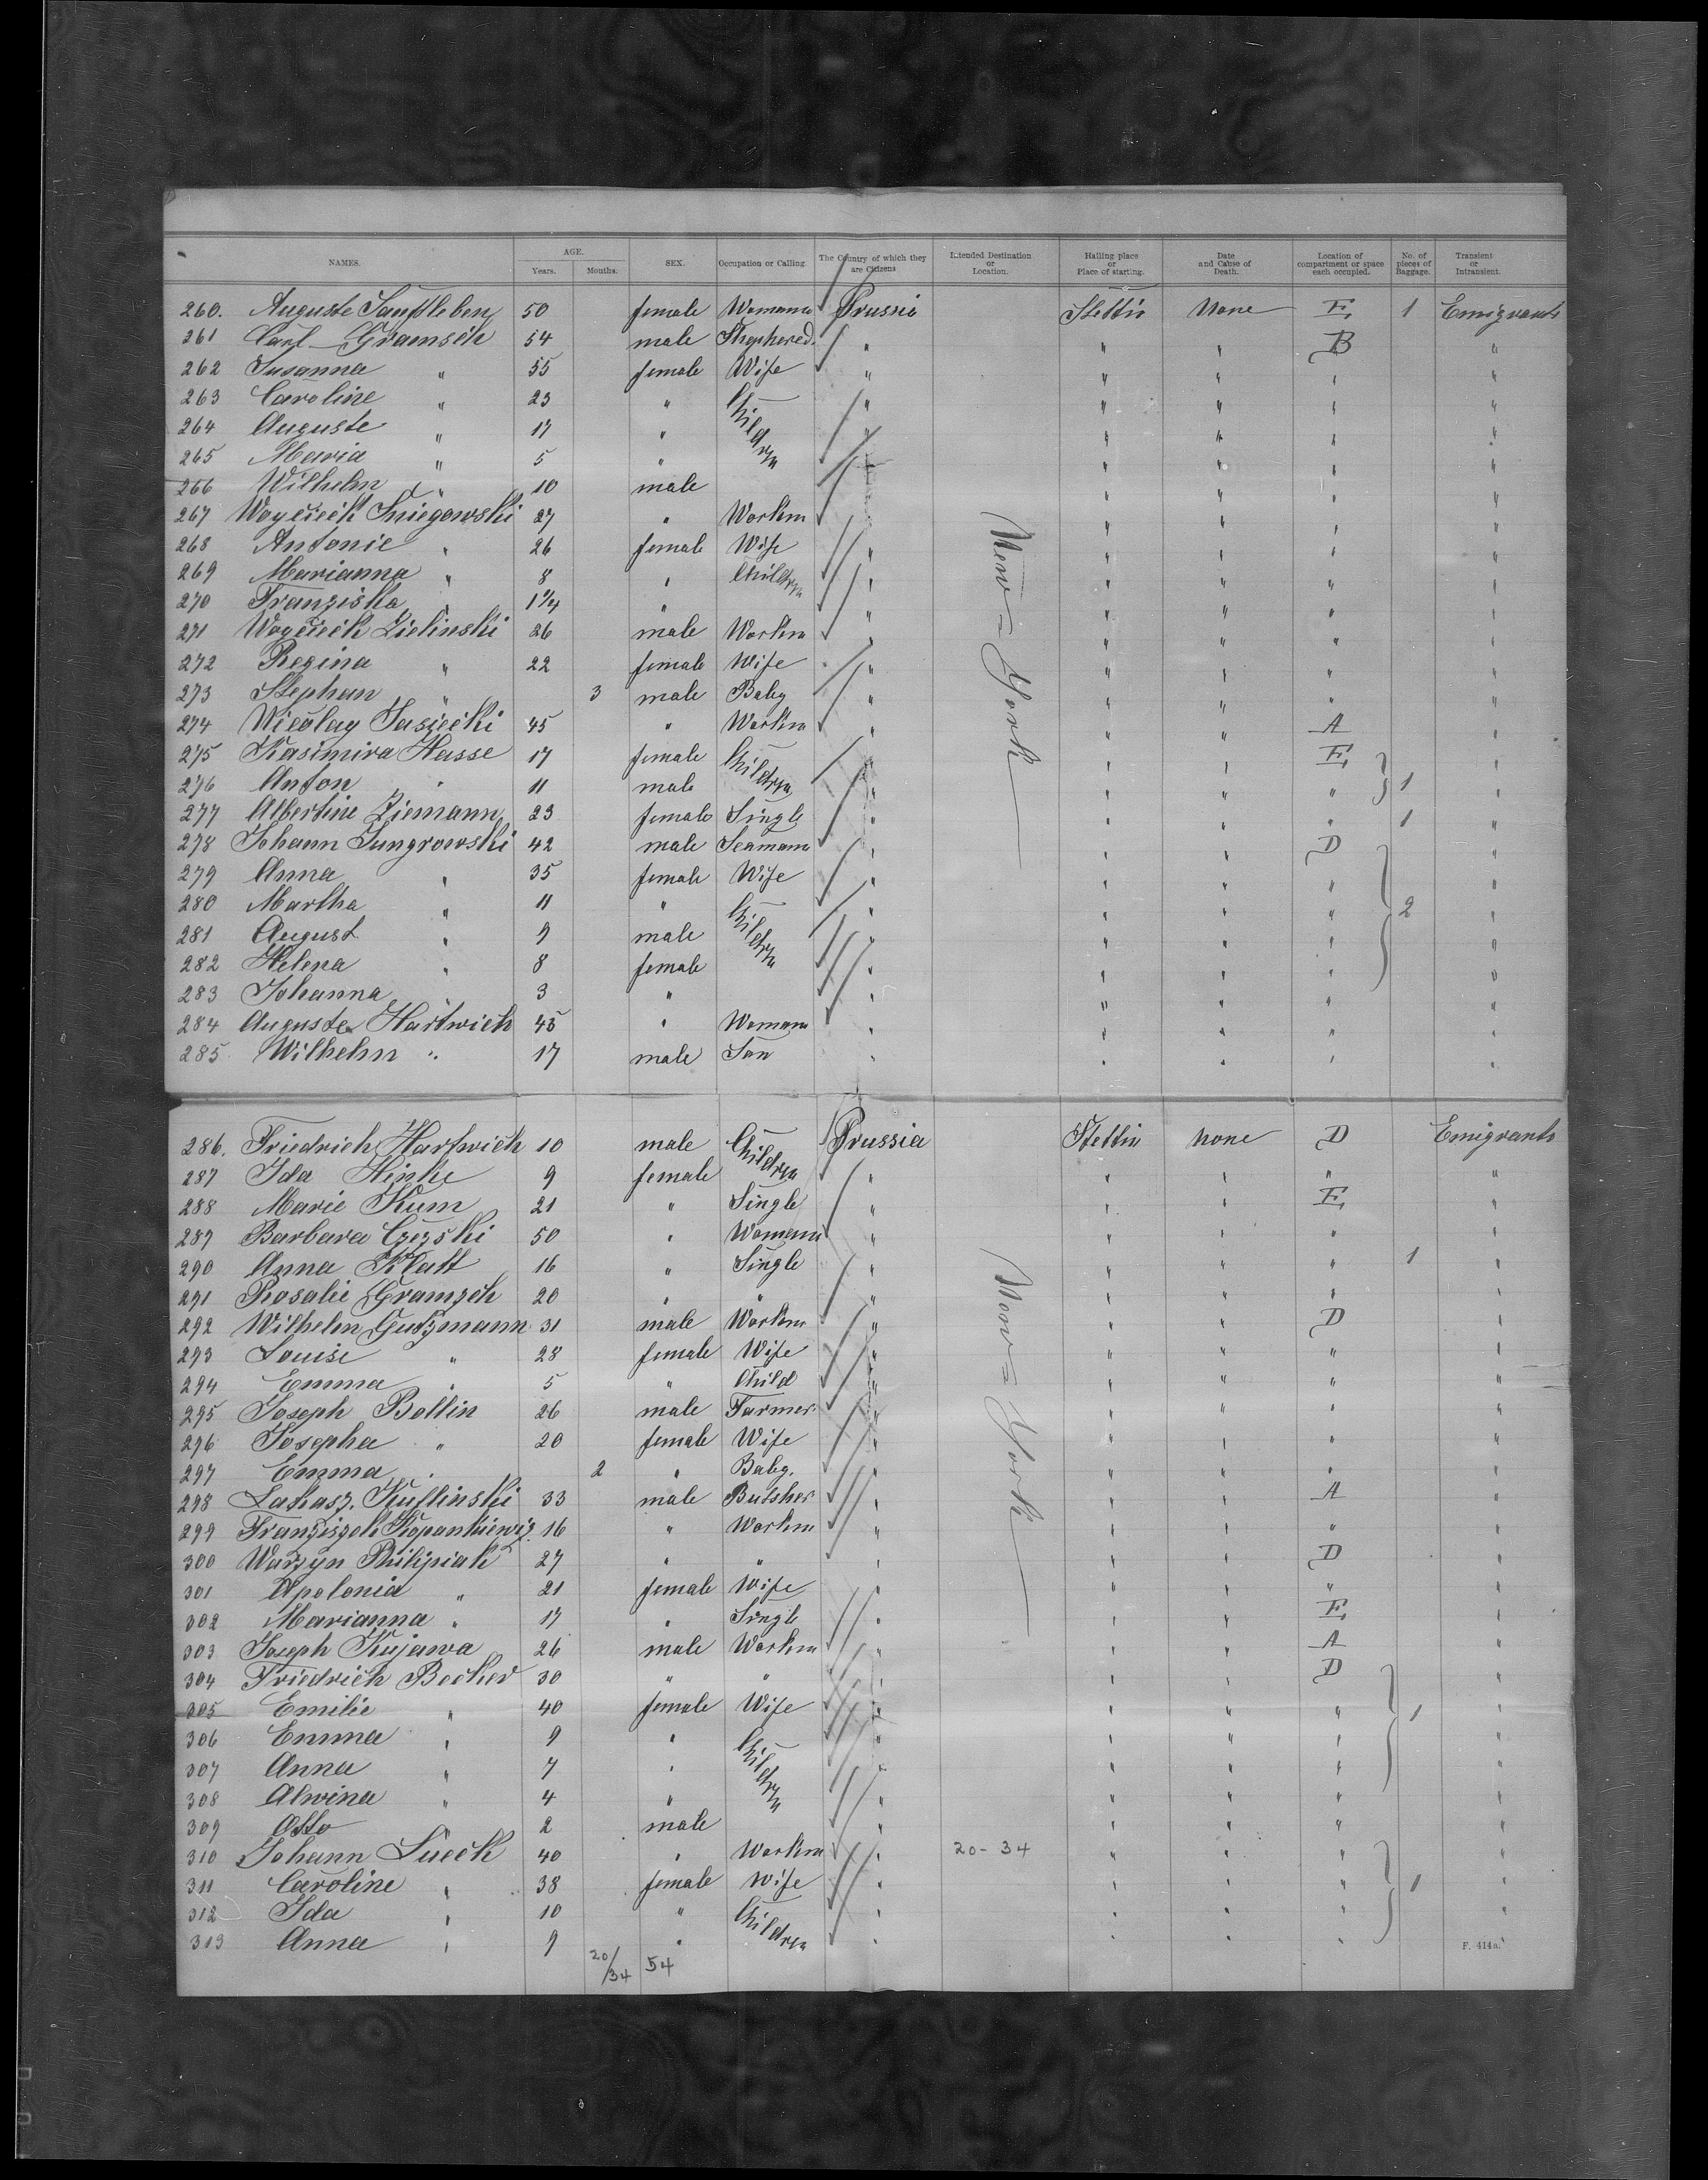 NAMES. AGE. Years. Months. SEX. Occupation or Calling. The Country of which they are Citizens Intended Destination or Location. Hailing place or Place of starting. Date and Cause of Death. Location of compartment or space each occupied. No. of pieces of Baggage. Transient or Intransient.
260. Auguste Sanftleben 50 female Womann Prussia Stettin None E, 1 Emigrants
261 Carl Gramsch 54 male Shephered " " " B "
262 Susanna " 55 female Wife " " " " "
263 Caroline " 23 " Children " " " " "
264 Auguste " 17 " " " " " "
265 Maria " 5 " " " " "
266 Wilhelm " 10 male " " " "
267 Woyciech Sniegowski 27 " Workm " " " "
268 Antonie " 26 female Wife " " " " "
269 Marianna " 8 " Children " " " " "
270 Franziska " 1 1/4 " " " " " "
271 Woyciech Zielinski 26 male Workm " " " " "
272 Regina " 22 female Wife " " " " "
273 Stephan " 3 male Baby " " " " "
274 Nicolay Jasiecki 45 " Workm " " " A "
275 Kasimira Hasse 17 female Children " " " E, "
276 Anton " 11 male " " " " 1 "
277 Albertine Ziemann 23 female Single " " " " 1 "
278 Johann Jungrowski 42 male Seamann " " " D "
279 Anna " 35 female Wife " " " " "
280 Martha " 11 " Children " " " " 2 "
281 August " 9 male " " " " "
282 Helena " 8 female " " " " "
283 Johanna " 3 " " " " " "
284 Auguste Hartwich 45 " Womann " " " " "
285. Wilhelm " 17 male Son " " " " "
New=York
286. Friedrich Hartwich 10 male Children Prussia Stettin none D Emigrants
287 Ida Hinke 9 female " " " " "
288 Marie Kum 21 " Single " " " E, "
289 Barbara Czezski 50 " Womann " " " " "
290 Anna Klatt 16 " Single " " " " 1 "
291 Rosalie Gramzch 20 " " " " " " "
292 Wilhelm Gutzmann 31 male Workm " " " D "
293 Louise " 28 female Wife " " " " "
294 Emma " 5 " Child " " " " "
295 Joseph Bollin 26 male Farmer " " " " "
296 Josepha " 20 female Wife " " " " "
297 Emma " 2 " Baby. " " " " "
298 Lukasz. Kuflinski 33 male Butsher " " " A "
299 Franziszek Kopankiewiz 16 " Workm " " " " "
300 Warzyn Philipiak 27 " " " " " D "
301 Apolonia " 21 female Wife " " " " "
302 Marianna " 17 " Single " " " E, "
303 Joseph Kujawa 26 male Workm " " " A "
304 Friedrich Becker 30 " " " " " D "
305 Emilie " 40 female Wife " " " " 1 "
306 Emma " 9 " Children " " " " "
307 Anna " 7 " " " " " "
308 Alwina " 4 " " " " " "
309 Otto " 2 male " " " "
310 Johann Lueck 40 " Workm " 20-34 " " " "
311 Caroline " 38 female Wife " " " " 1 "
312 Ida " 10 " Children " " " " "
313 Anna " 9 " " " " "
New=York
20/34 54
F. 414a.